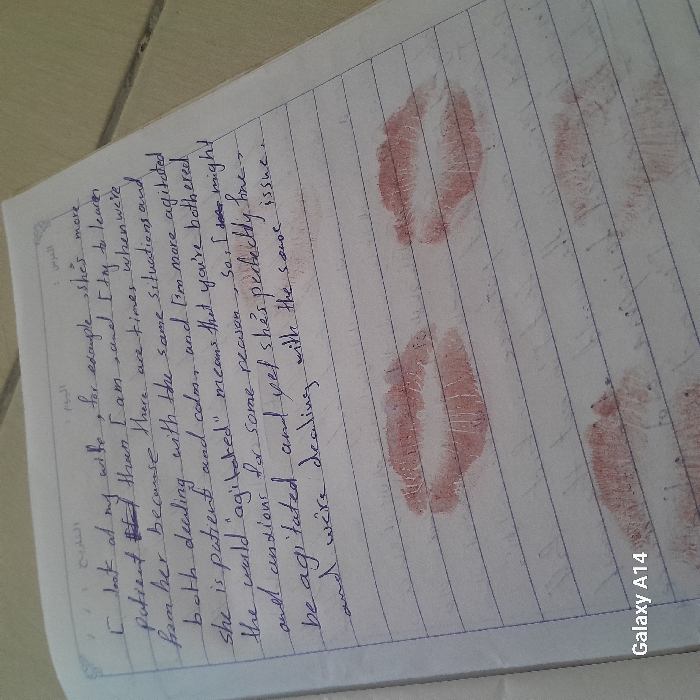 I look at my wife, for example, she's more
patient than I am and I try to learn
from her because there are times when we're
both dealing with the same situations and
she is patient and calm and I'm more agitated
the would "agitated" means that you're bothered
and anxious for some reason. So, I might
be agitated and yet she's perfectly fine.
and we're dealing with the same issue.
Galaxy A14